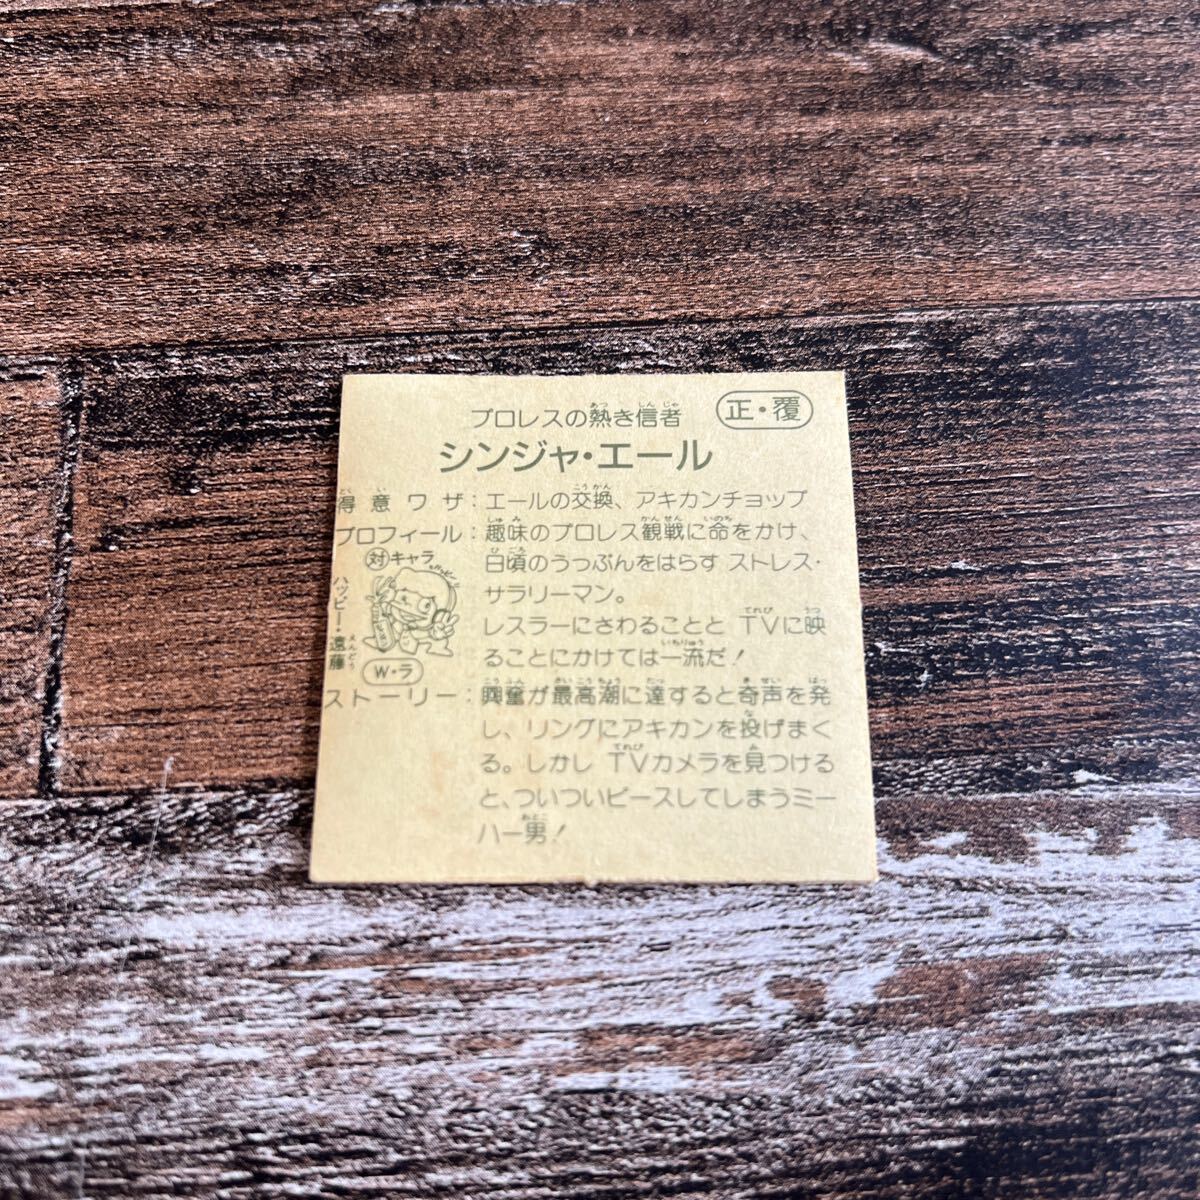 プロレスの熱き信者
正・覆
シンジャ・エール
得意ワザ：エールの交換、アキカンチョップ
プロフィール：趣味のプロレス観戦に命をかけ、
日頃のうっぷんをはらす ストレス・
サラリーマン。
レスラーにさわることと TVに映
ることにかけては一流だ！
対 キャラ
ハッピー・遠藤
W・ラ
ストーリー：興奮が最高潮に達すると奇声を発
し、リングにアキカンを投げまく
る。しかし TVカメラを見つける
と、ついついピースしてしまうミー
ハー男！